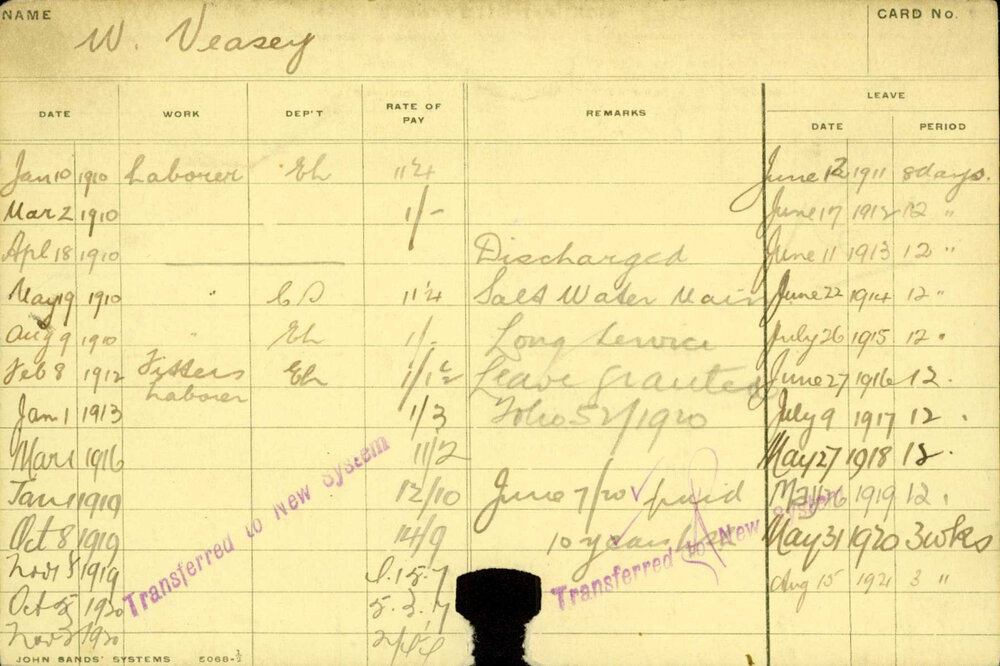 NAME W. Veasey CARD No.
DATE WORK DEP'T RATE OF PAY REMARKS LEAVE
DATE PERIOD
Jan 10 1910 Laborer Eh June 12 1911 8 days.
Mar 2 1910 1/- June 17 1912 12 "
Apl 18 1910 Discharged June 11 1913 12 "
May 19 1910 " Salt Water Main June 22 1914 12 "
Aug 9 1910 " Eh 1/- Long Service July 26 1915 12 "
Feb 8 1912 Fitters Laborer Eh Leave granted June 27 1916 12.
Jan 1 1913 1/3 Folio 52/1920 July 9 1917 12.
Mar 1 1916 11/2 May 27 1918 12.
Jan 1 1919 12/10 June 7/20 paid May 26 1919 12.
Oct 8 1919 14/9 10 years May 31 1920 3 wks
Nov 1919 Aug 15 1921 3 "
Oct 5 1920 5.3.7
Nov 3 1920
Transferred to New System
Transferred to New System
JOHN SANDS' SYSTEMS 5068-½